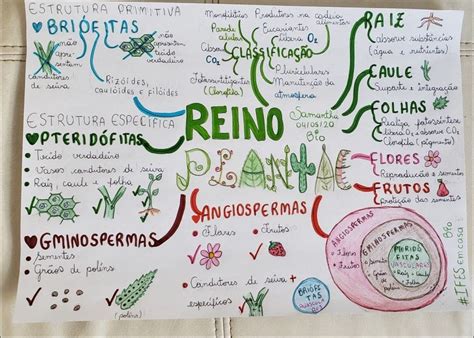 ESTRUTURA PRIMITIVA
BRIÓFITAS
não
apre-
sentam
não
apresentam
tecido
verdadeiro
Condutores
de seiva
Rizóides,
caulóides e filóides
Monofiléticos
Parede
celular
Absorve CO₂
Fotossintetizantes
(Clorofila)
Produtores na cadeia
alimentar
Eucariontes
Libera O₂
CLASSIFICAÇÃO
Pluricelulares
Manutenção da
atmosfera
RAIZ
absorve substâncias
(água e nutrientes)
CAULE
Suporte e integração
FOLHAS
Realiza fotossíntese
Libera O₂ e absorve CO₂
Clorofila (pigmento)
FLORES
Reprodução e sementes
FRUTOS
Proteção da
semente
REINO
PLANTAE
Samantha
04/05/20
Bio
ESTRUTURA ESPECÍFICA
PTERIDÓFITAS
Tecido verdadeiro
Vasos condutores de seiva
Raiz, caule e folha
GMINOSPERMAS
sementes
Grãos de poléns
(poléns)
ANGIOSPERMAS
Flores
Frutos
Condutores de seiva
específicos
BRIÓFITAS
ANGIOSPERMAS
Flores
Frutos
GMINOSPERMAS
Semente
Grão de
pólen
PTERIDÓFITAS
VASCULARES
Raiz
Caule
Folha
#IFESemcasa